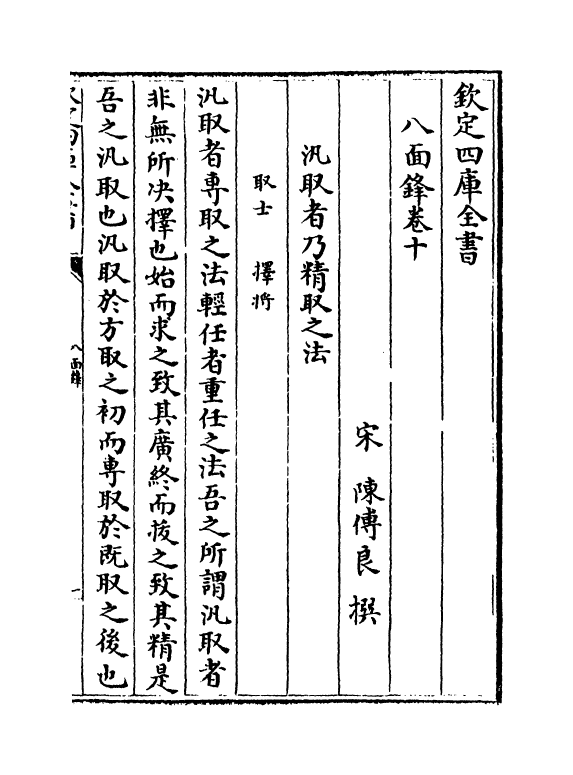 欽定四庫全書
八面鋒卷十
宋 陳傅良 撰
汎取者乃精取之法
取士 擇將
汎取者専取之法輕任者重任之法吾之所謂汎取者
非無所决擇也始而求之致其廣終而拔之致其精是
吾之汎取也汎取於方取之初而専取於既取之後也
八面鋒